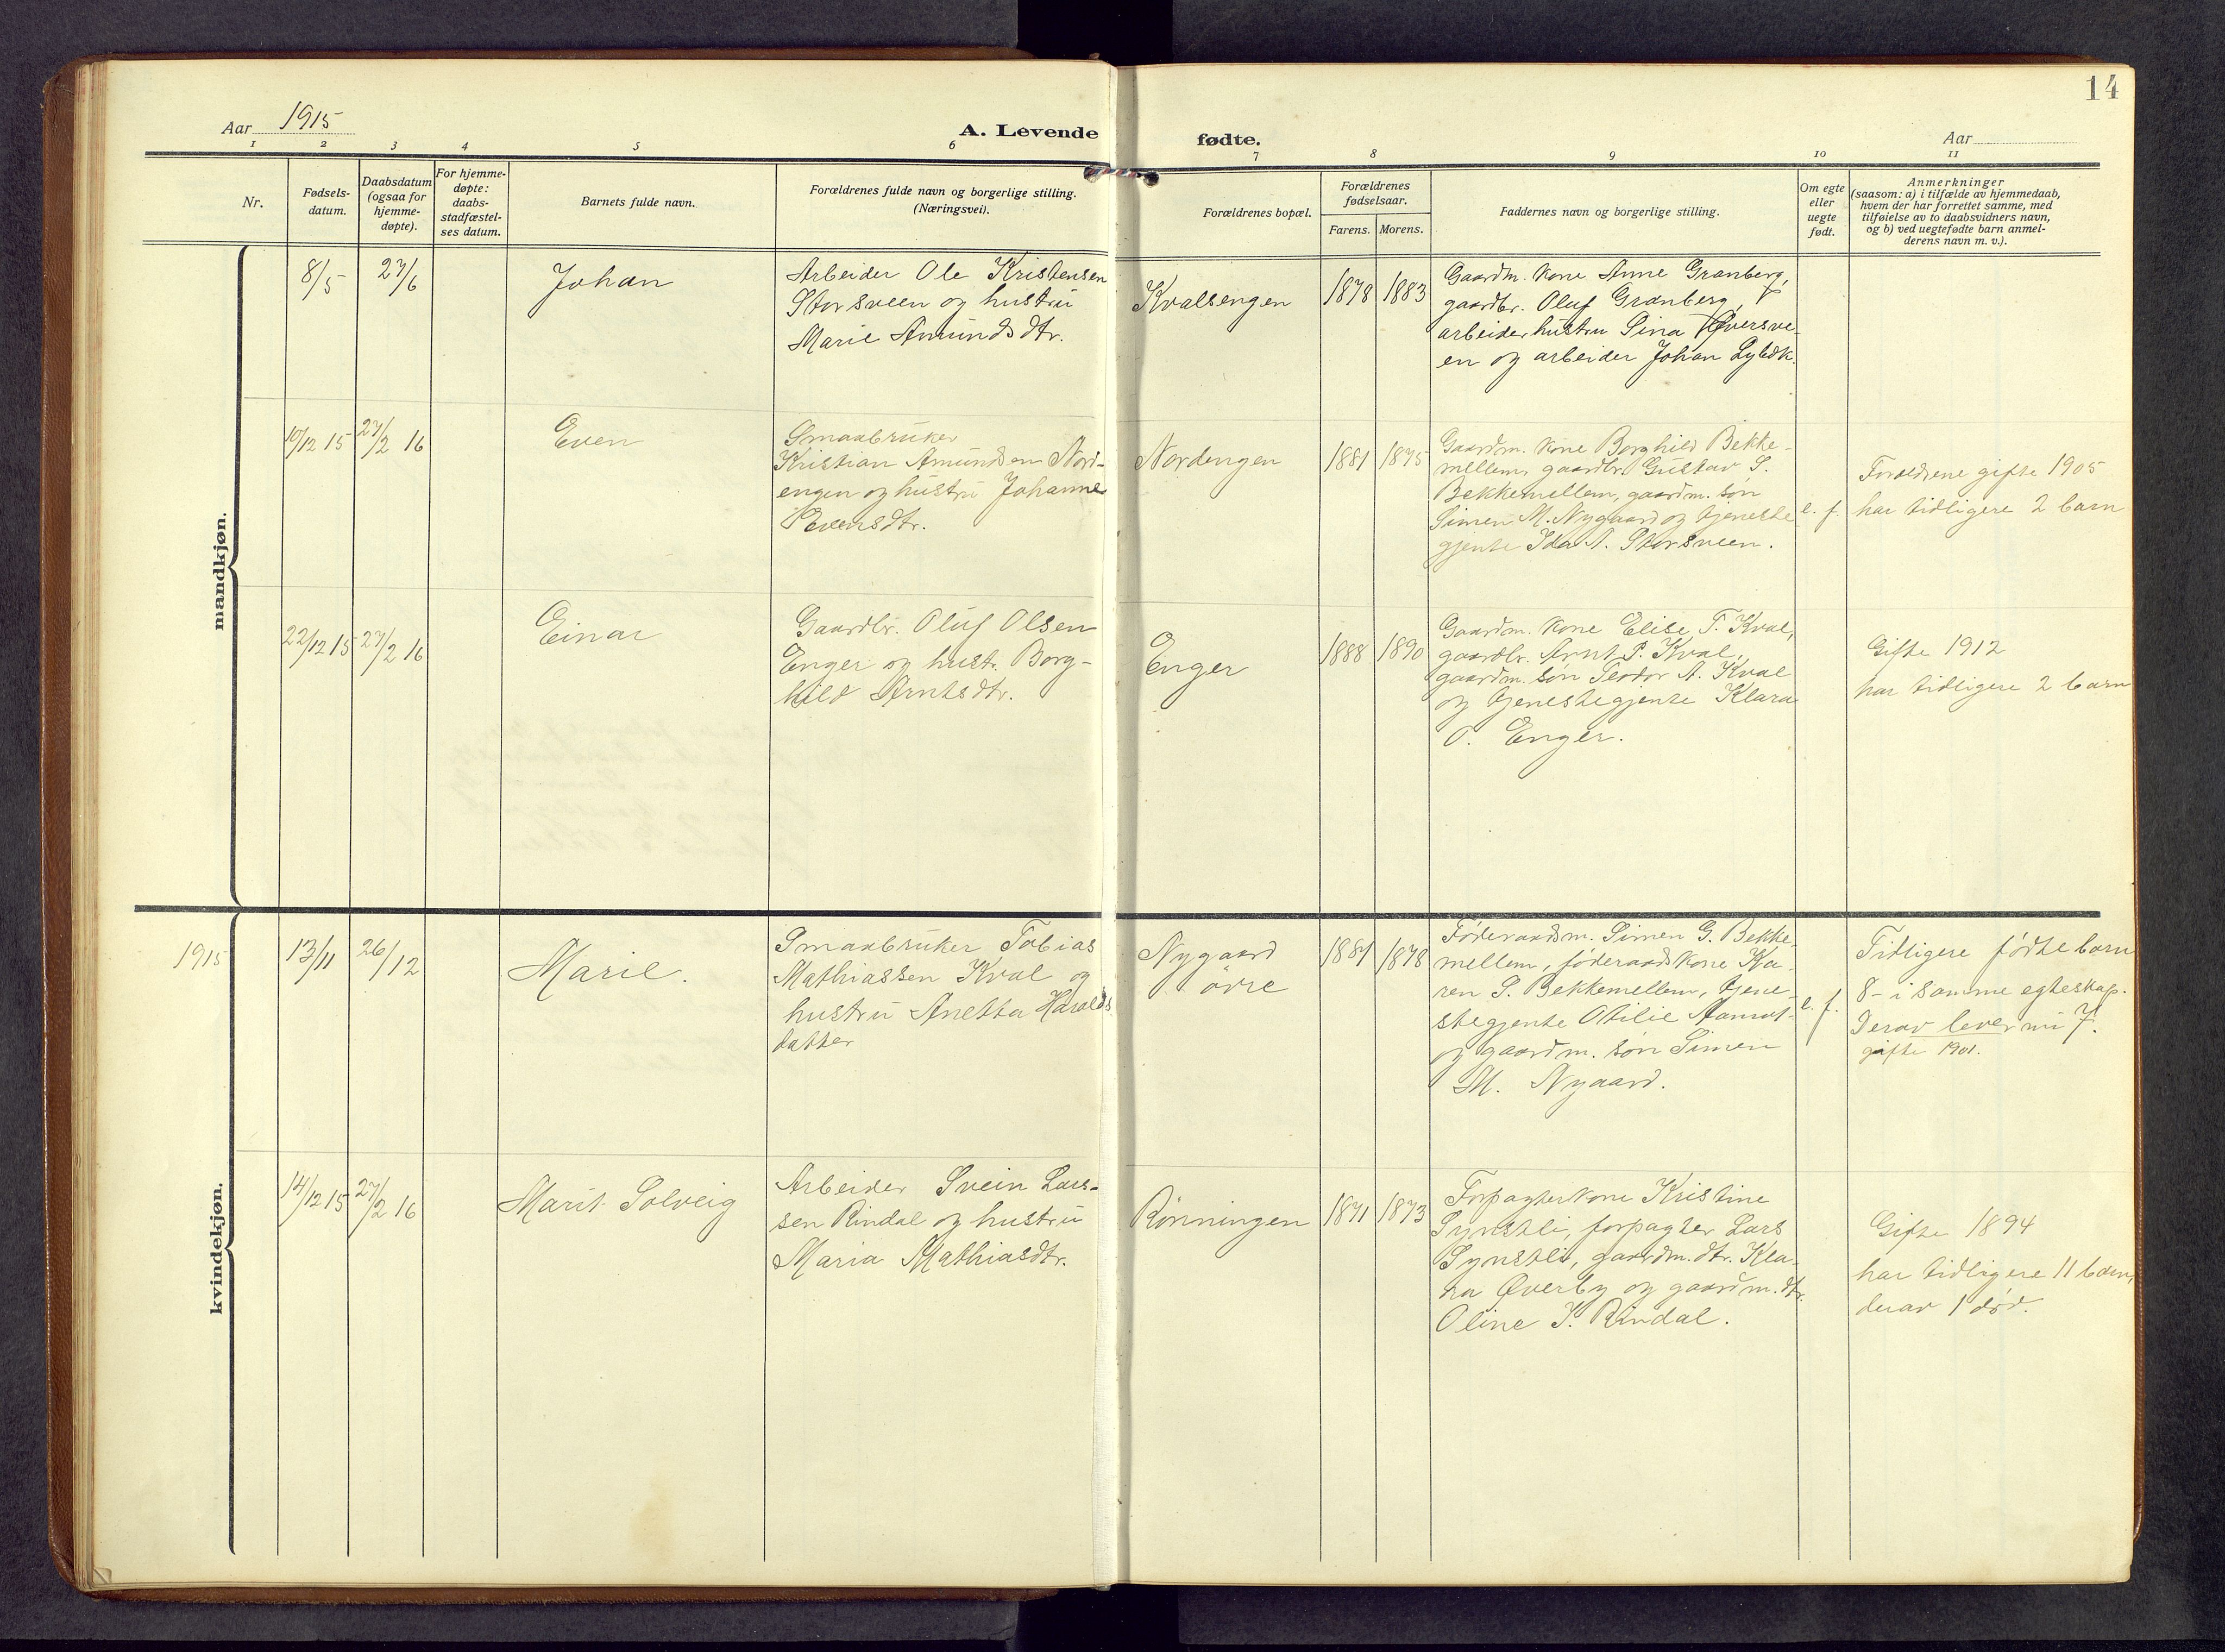 14
Aar 1915
A. Levende
fødte.
Aar
1 2 3 4 5 6 7 8 9 10 11
Nr.
Fødsels-
datum.
Daabsdatum
(ogsaa for
hjemme-
døpte).
For hjemme-
døpte:
daabs-
stadfæstel-
ses datum.
Barnets fulde navn.
Forældrenes fulde navn og borgerlige stilling.
(Næringsvei).
Forældrenes bopæl.
Forældrenes
fødselsaar.
Farens. Morens.
Faddernes navn og borgerlige stilling.
Om egte
eller
uegte
født.
Anmerkninger
(saasom: a) i tilfælde av hjemmedaab,
hvem der har forrettet samme, med
tilføielse av to daabsvidners navn,
og b) ved uegtefødte barn anmel-
derens navn m. v.).
mandkjøn.
8/5
27/6
Johan
Arbeider Ole Kristensen
Storsveen og hustru
Marie Amundsdtr.
Kvalsengen
1878
1883
Gaardm. kone Anne Granberg,
gaardbr. Oluf Granberg,
arbeider hustru Sina Øversve-
en og arbeider Johan
10/12 15
27/2 16
Even
Smaabruker
Kristian Amundsen Nord-
engen og hustru Johanne
Evensdtr.
Nordengen
1881
1875
Gaardm. kone Borghild Bekke-
mellem, gaardbr. Gustav S.
Bekkemellem, gaardm. søn
Simen M. Nygaard og tjeneste
gjente Ida A. Storsveen.
e. f.
Forældrene gifte 1905
har tidligere 2 barn
22/12 15
27/2 16
Einar
Gaardbr. Oluf Olsen
Enger og hustr. Borg-
hild Arntsdtr.
Enger
1888
1890
Gaardm. kone Elise T. Kval,
gaardbr. Arnt P. Kval,
gaardm. søn Teodor A. Kval
og tjenestegjente Klara
O. Enger.
Gifte 1912
har tidligere 2 barn
kvindekjøn.
1915
13/11
26/12
Marie.
Smaabruker Tobias
Mathiassen Kval og
hustru Anetta Haralds
datter
Nygaard
övre
1881
1878
Føderaadsm. Simen G. Bekke-
mellem, føderaadskone Ka-
ren S. Bekkemellem, tjene-
stegjente Otilie Aamot
og gaardm. søn Simen
M. Nygaard.
e. f.
Tidligere fødte barn
8 - i samme egteskap.
Derav lever nu 7.
gifte 1901.
14/12 15
27/2 16
Marit Solveig
Arbeider Svein Lars-
sen Rindal og hustru
Maria Mathiasdtr.
Rönningen
1871
1873
Forpagterkone Kristine
Synstli, forpagter Lars
Synstli, gaardm. dtr. Kla-
ra Øverby og gaardm. dtr.
Oline K. Rindal.
Gifte 1894
har tidligere 11 barn,
derav 1 død.